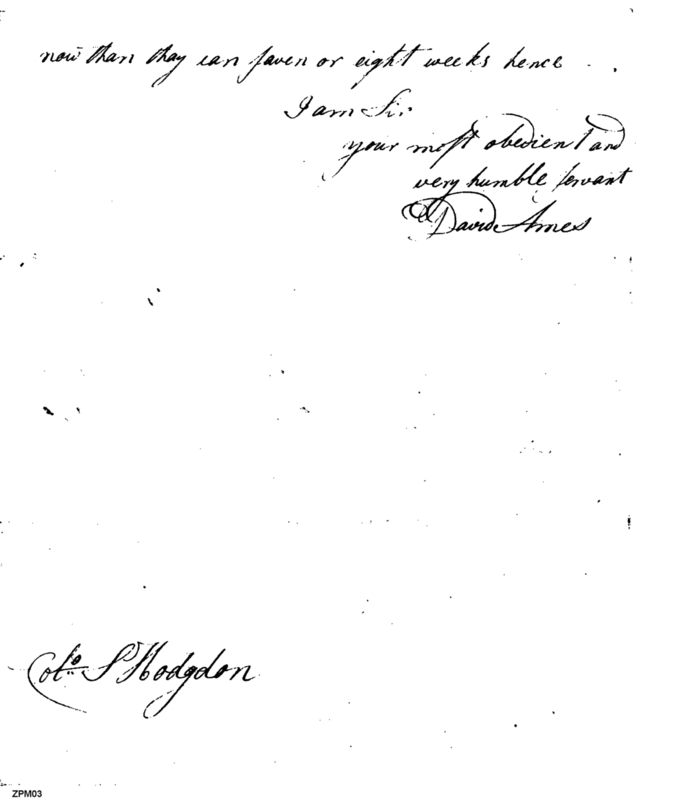 now than thay can saven or eight weeks hence
I am Sir
your most obedient and
very humble servant
David Ames
Colo. S Hodgdon
ZPM03